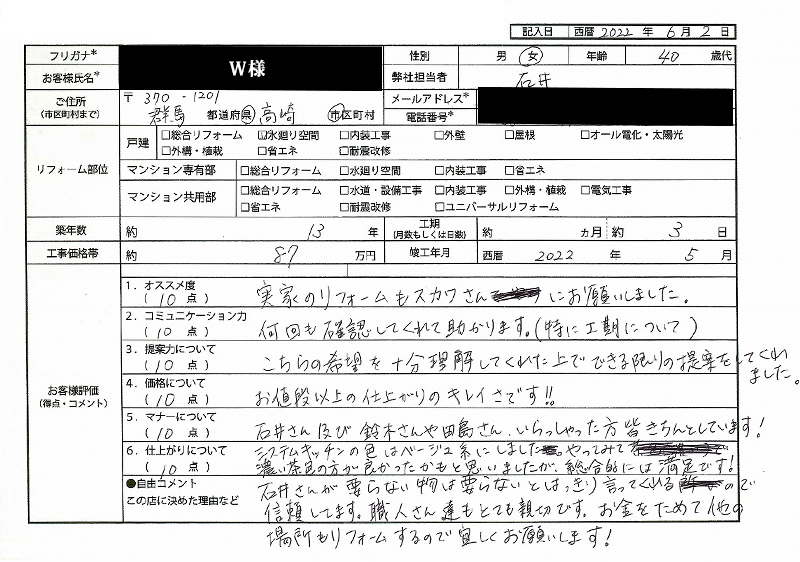 記入日 西暦 2022 年 6月 2日
フリガナ* W様 性別 男 女 年齢 40 歳代
お客様氏名* 弊社担当者 石井
ご住所 (市区町村まで) 〒370-1201 群馬 都道府県 高崎 市区町村 メールアドレス*
電話番号*
リフォーム部位 戸建 □総合リフォーム ☑水廻り空間 □内装工事 □外壁 □屋根 □オール電化・太陽光
□外構・植栽 □省エネ □耐震改修
マンション専有部 □総合リフォーム □水廻り空間 □内装工事 □省エネ
マンション共用部 □総合リフォーム □水道・設備工事 □内装工事 □外構・植栽 □電気工事
□省エネ □耐震改修 □ユニバーサルリフォーム
築年数 約 13 年 工期 (月数もしくは日数) 約 カ月 約 3 日
工事価格帯 約 87 万円 竣工年月 西暦 2022 年 5 月
お客様評価 (得点・コメント)
1．オススメ度 (10点) 実家のリフォームもスカワさんにお願いしました。
2．コミュニケーション力 (10点) 何回も確認してくれて助かります。(特に工期について)
3．提案力について (10点) こちらの希望を十分理解してくれた上でできる限りの提案をしてくれました。
4．価格について (10点) お値段以上の仕上がりのキレイさです!!
5．マナーについて (10点) 石井さん及び鈴木さんや田島さん、いらっしゃった方皆きちんとしています!
6．仕上がりについて (10点) システムキッチンの色はベージュ系にしました。やってみて
濃い茶色の方が良かったかもと思いましたが、総合的には満足です!
●自由コメント この店に決めた理由など 石井さんが要らない物は要らないとはっきり言ってくれるので
信頼してます。職人さん達もとても親切です。お金をためて他の
場所もリフォームするので宜しくお願いします!